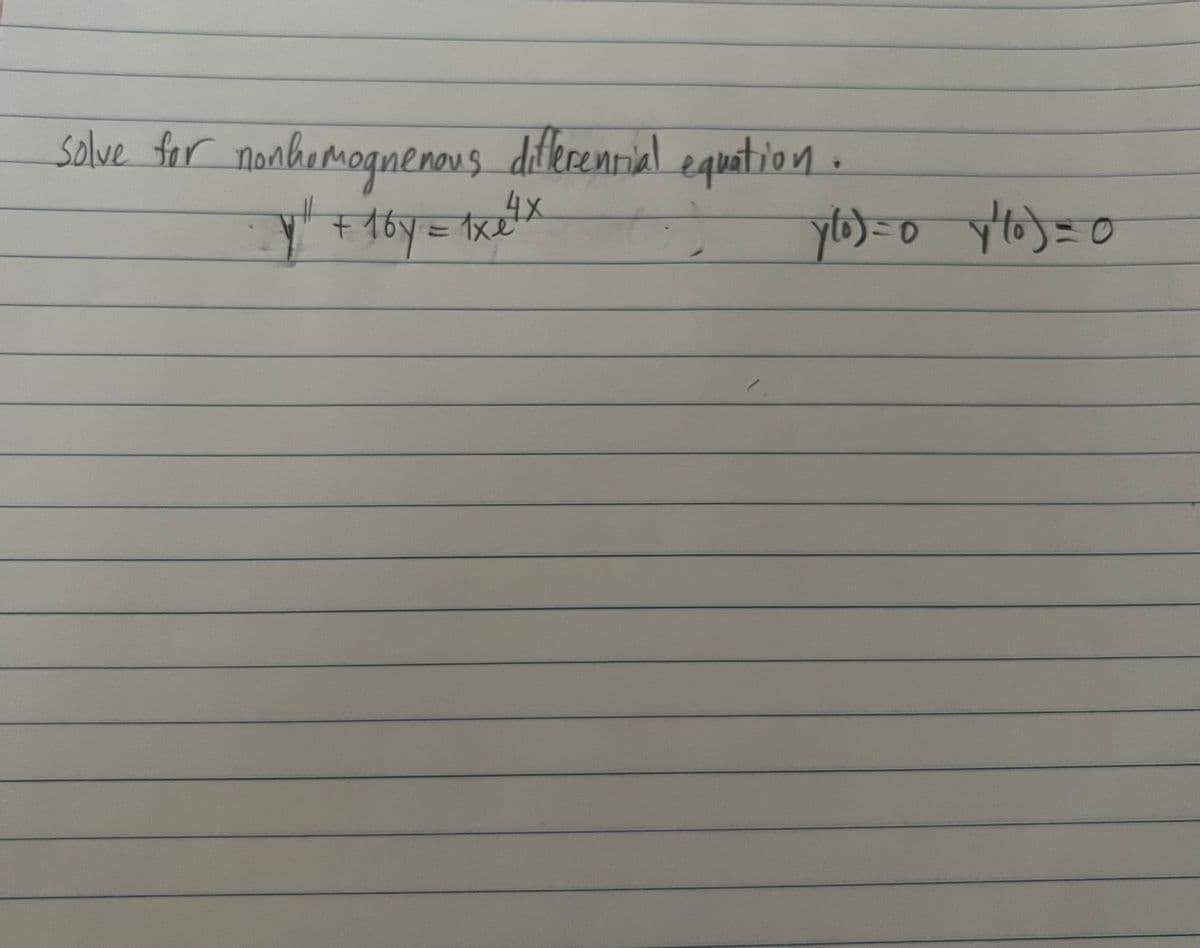 solve for nonhomognenous differenrial equation.
y'' + 16y = 1xe^4x ; y(0)=0 y'(0)=0